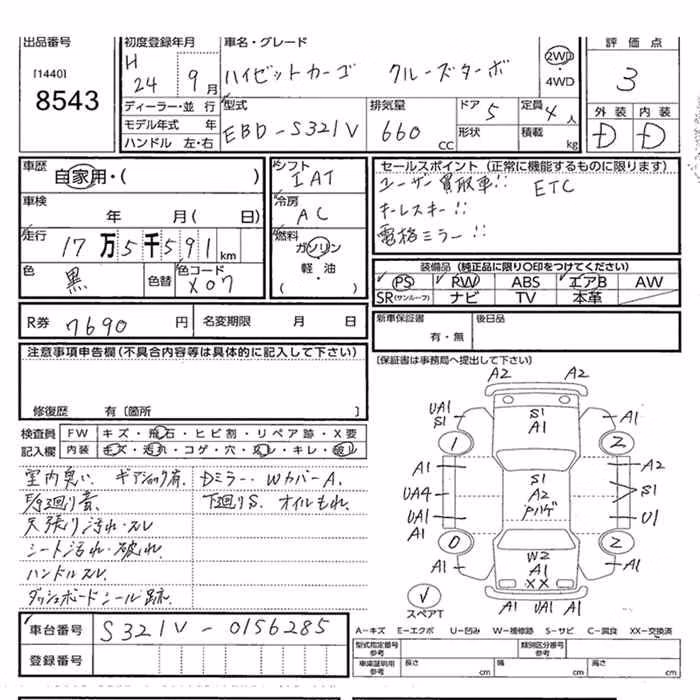 出品番号
[1440]
8543
初度登録年月
H
24 9月
車名・グレード
ハイゼットカーゴ クルーズターボ
2WD
・4WD
評価点
3
外装 内装
D D
ディーラー・並行
モデル年式 年
ハンドル 左・右
型式
EBD-S321V
排気量
660 cc
ドア 5
形状
定員 4人
積載 kg
車歴
自家用・( )
車検
年 月( 日)
走行
17万5千591km
色
黒
色替
色コード
X07
シフト
IAT
冷房
AC
燃料
ガソリン
・軽・油
( )
セールスポイント (正常に機能するものに限ります)
ユーザー買取車!! ETC
キーレスキー!!
電格ミラー!!
装備品 (純正品に限り○印をつけてください)
PS PW ABS エアB AW
SR(サンルーフ) ナビ TV 本革
R券 7690円 名変期限 月 日
新車保証書
有・無
後日品
(保証書は事務局へ提出して下さい)
注意事項申告欄(不具合内容等は具体的に記入して下さい)
修復歴 有〔箇所 〕
検査員 FW キズ・飛石・ヒビ割・リペア跡・X要
記入欄 内装 キズ・汚れ・コゲ・穴・スレ・キレ・破れ
室内臭い ギアショック有. Dミラー・WカバーA.
天張り汚れ・スレ 下廻りS. オイルもれ.
シート汚れ・破れ.
ハンドルスレ.
ダッシュボードシール跡.
車台番号 S321V-0156285
登録番号
A2 A2
UA1
S1
S1
A1
A1
1 2
A1 A2
S1
A2
Pハゲ
UA4 S1
UA1 U1
A1
0 2
A1 W2 A1
A1
XX
A1 UA1 A1
スペアT
A-キズ E-エクボ U-凹み W-補修跡 S-サビ C-腐食 XX-交換済
型式指定番号
参考
類別区分番号
参考
車庫証明用
参考
長さ cm 幅 cm 高さ cm